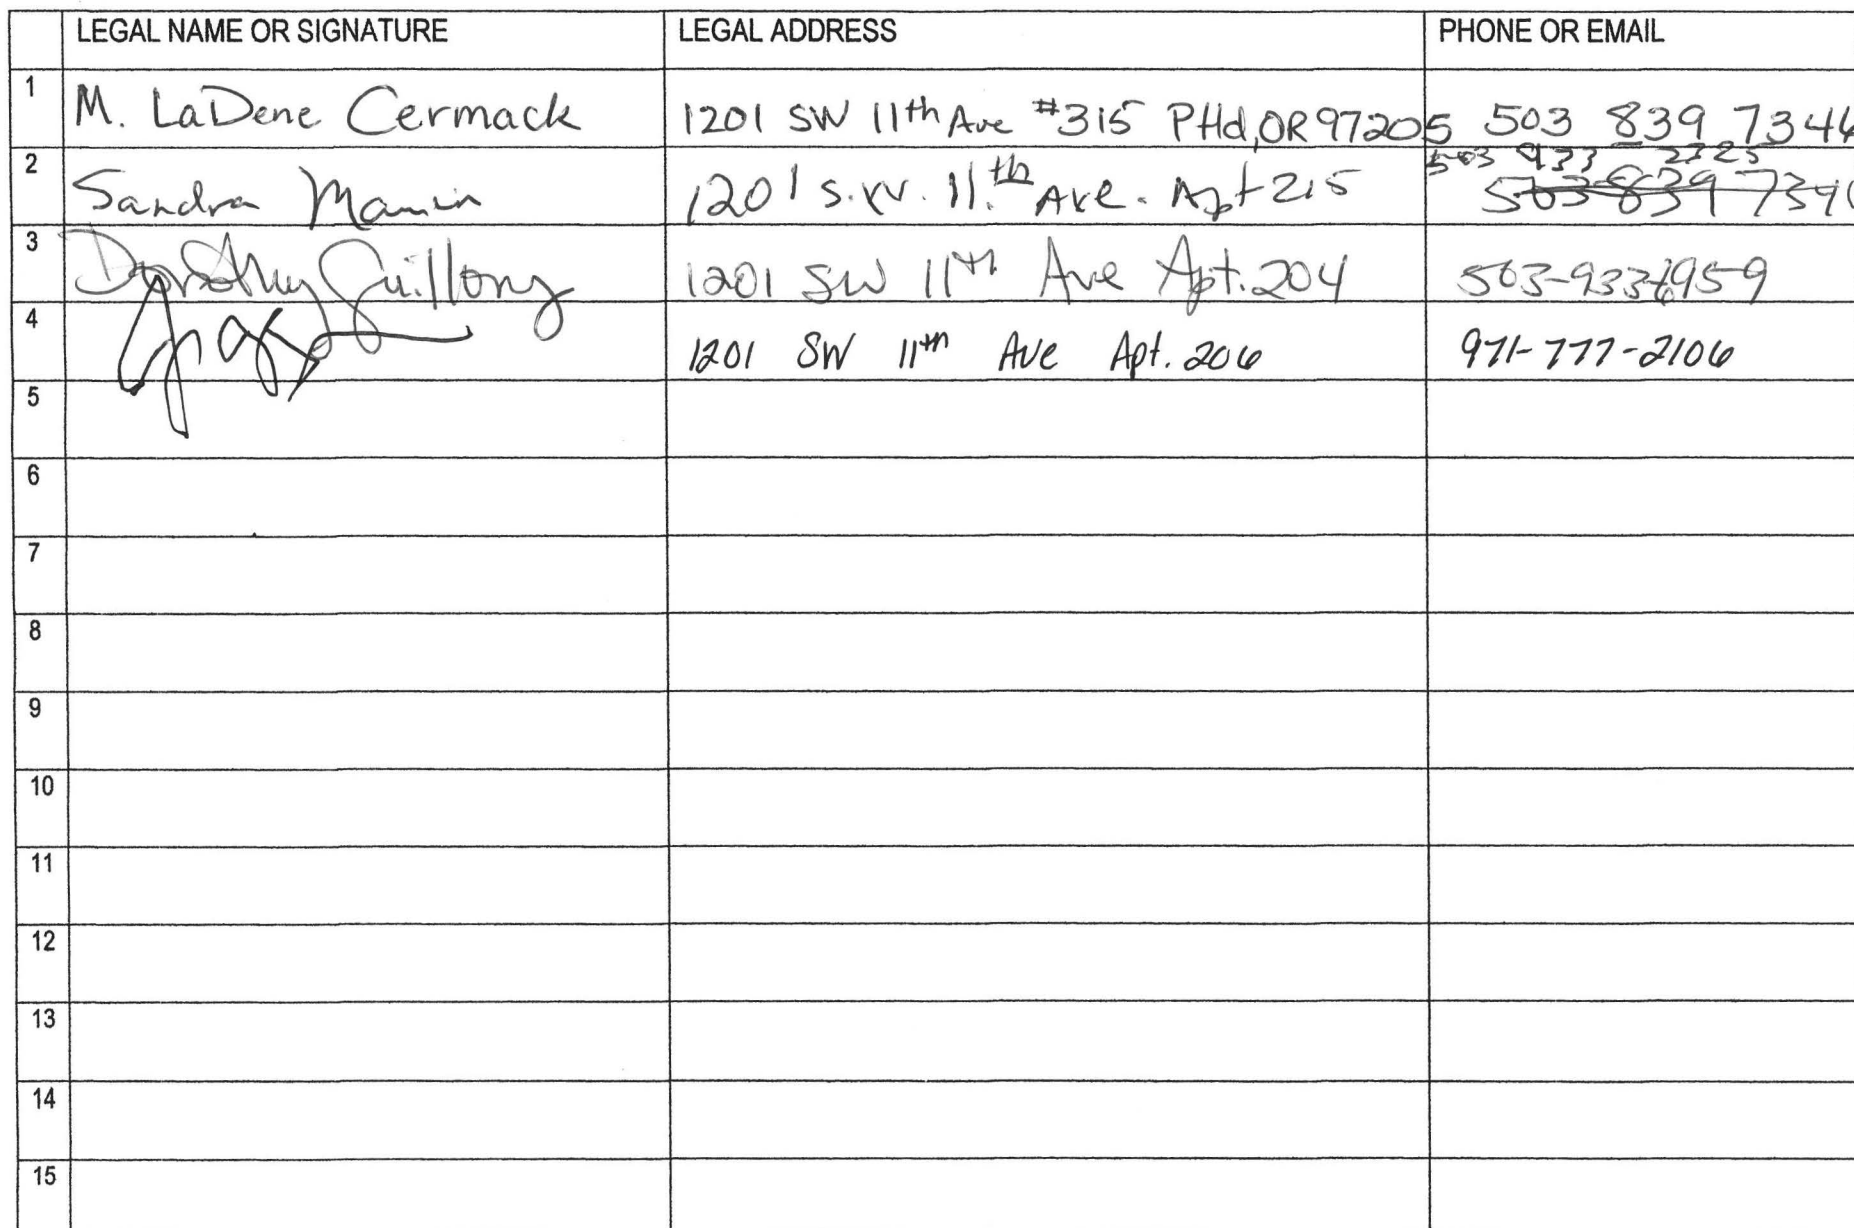 LEGAL NAME OR SIGNATURE LEGAL ADDRESS PHONE OR EMAIL
1 M. LaDene Cermack 1201 SW 11th Ave #315 Ptld, OR 97205 503 839 7346
503 933 2325
2 Sandra 1201 S.W. 11.th Ave. Apt 215 503 839 734
3 Dorothy Guillory 1201 SW 11th Ave Apt. 204 503-933-6959
4 1201 SW 11th Ave Apt. 206 971-777-2106
5
6
7
8
9
10
11
12
13
14
15